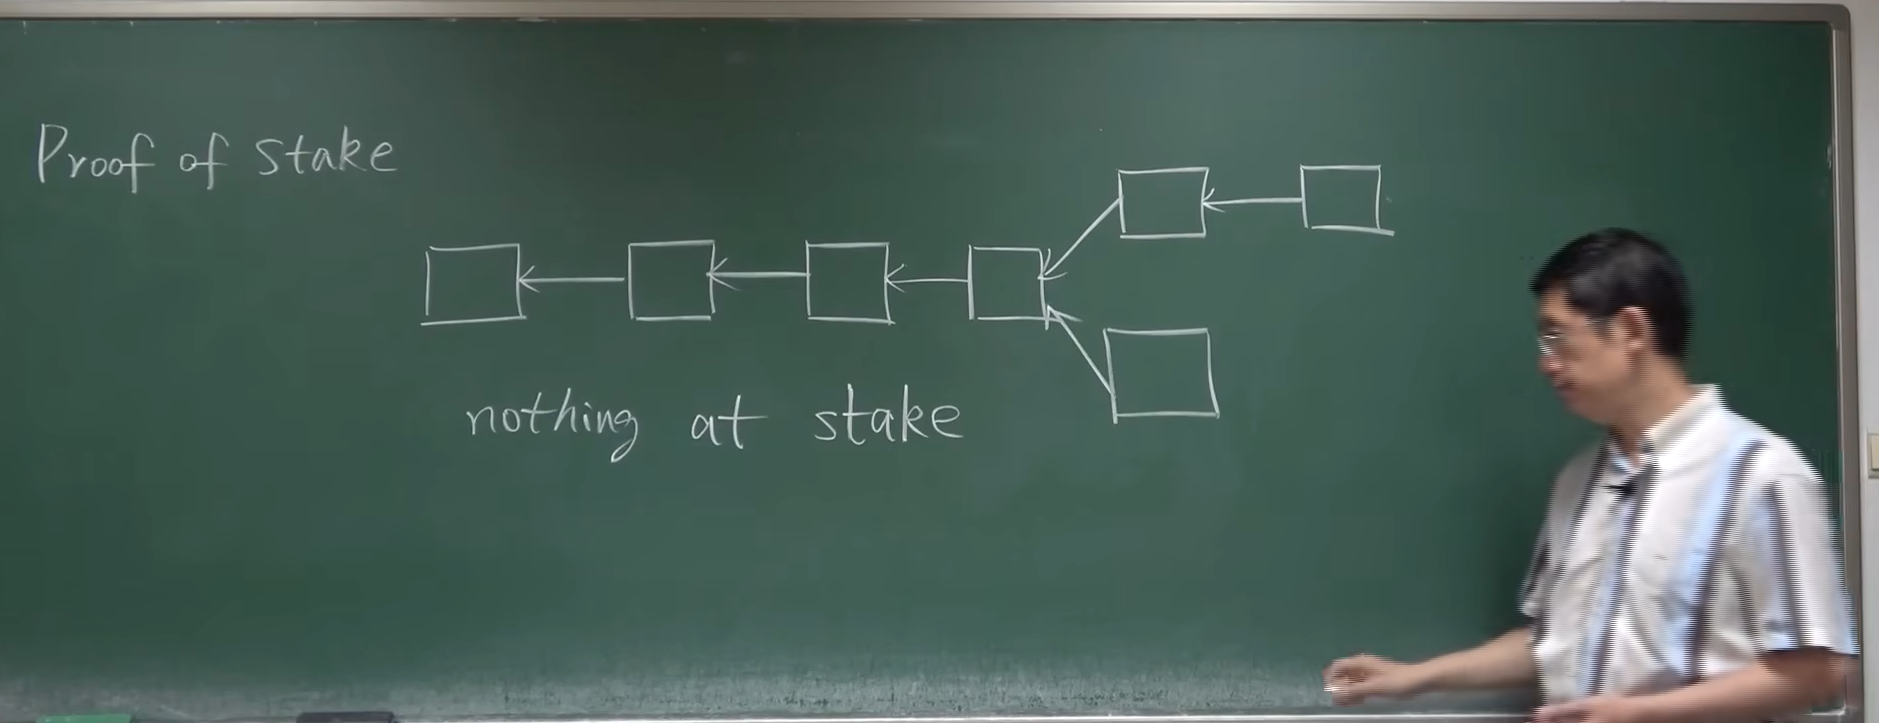 Proof of stake
nothing at stake